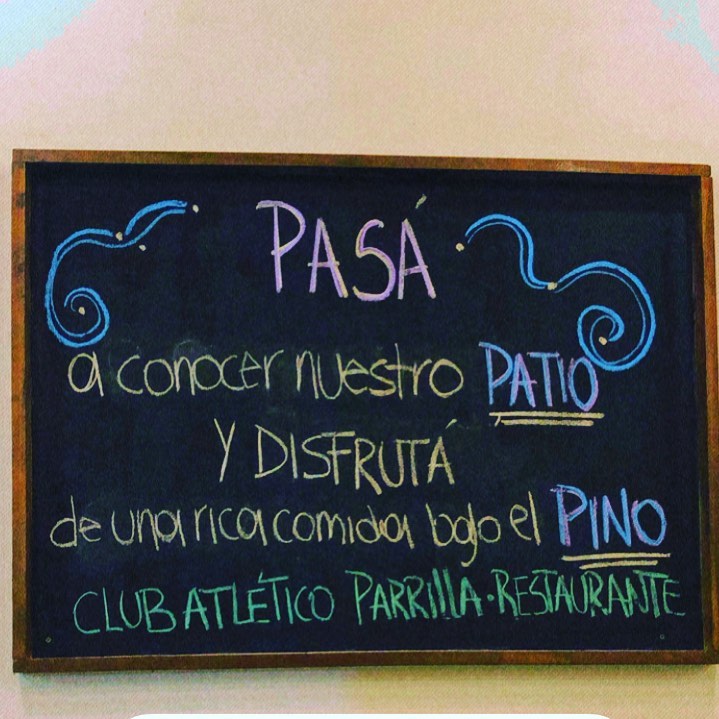 PASÁ
a conocer nuestro PATIO
Y DISFRUTÁ
de una rica comida bajo el PINO
CLUB ATLÉTICO PARRILLA·RESTAURANTE